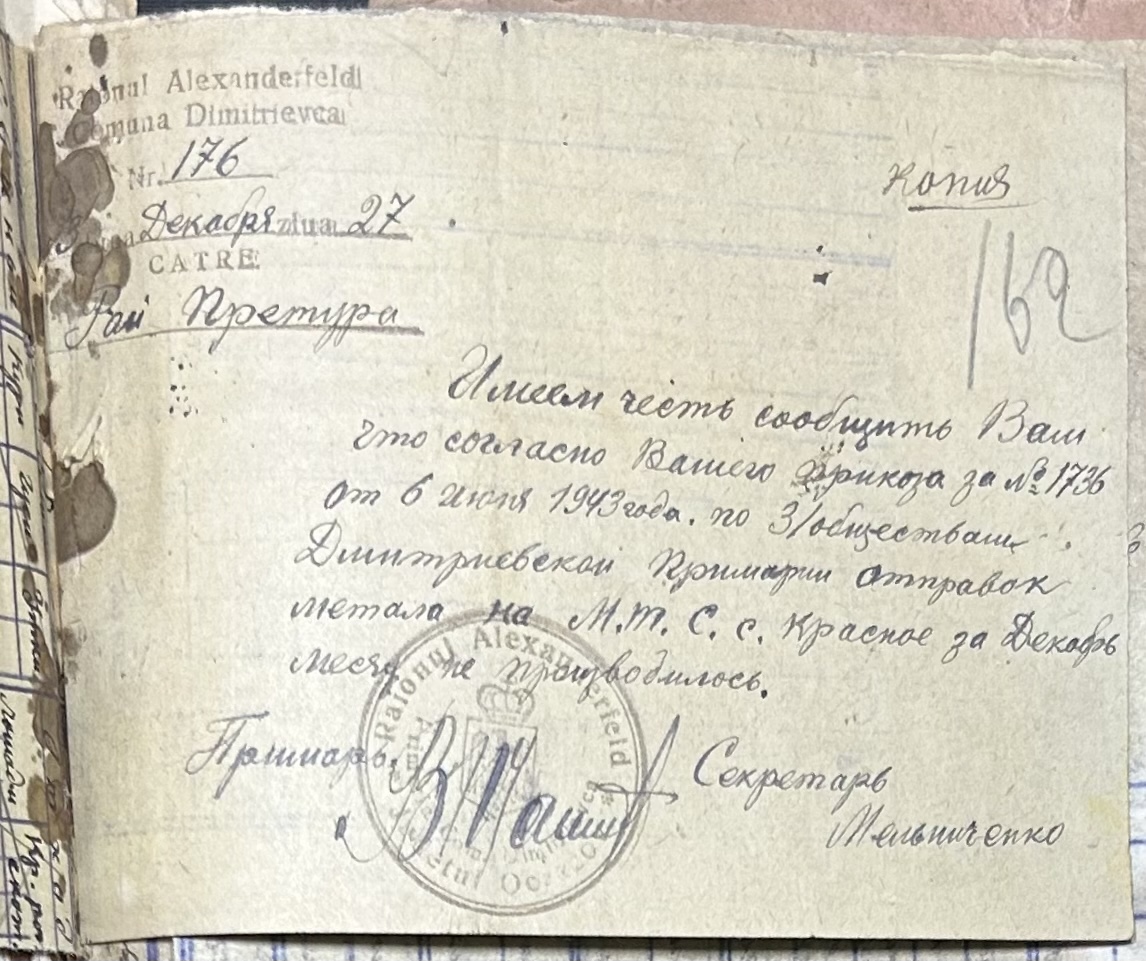 Raionul Alexanderfeld
Comuna Dimitrievca
Nr. 176
Декабря ziua 27
CATRE
Рай Претура
Копия
162
Имеем честь сообщить Вам
что согласно Вашего приказа за № 1736
от 6 июня 1943 года. по 3/обществам
Дмитриевской Примарии отправок
метала на М.Т.С. с. Красное за Декабрь
месяц не производилось.
Примарь.
Секретарь
Мельниченко
Raionul Alexanderfeld